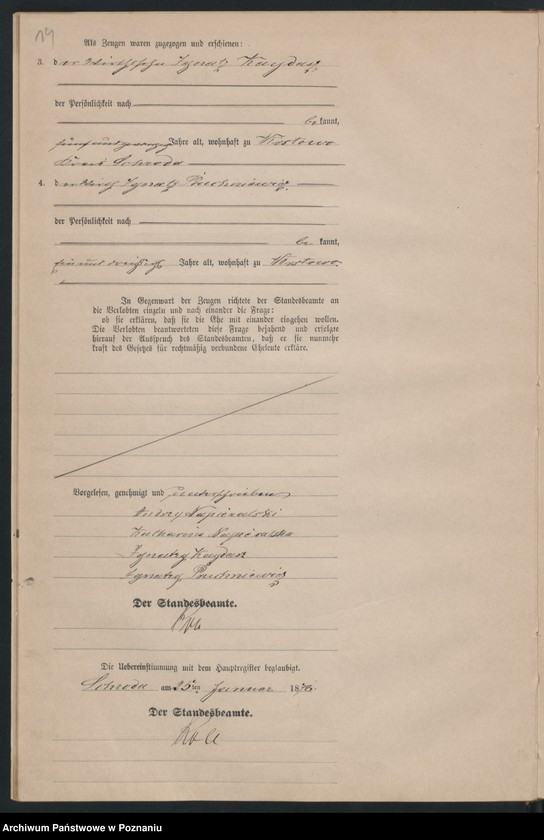 14
Als Zeugen waren zugezogen und erschienen:
3. der Wirthssohn Ignatz Kaydan
der Persönlichkeit nach
bekannt,
fünf und zwanzig Jahre alt, wohnhaft zu
Kreis Schroda
4. der Wirth Ignatz
der Persönlichkeit nach
be kannt,
ein und dreißig Jahre alt, wohnhaft zu
In Gegenwart der Zeugen richtete der Standesbeamte an
die Verlobten einzeln und nach einander die Frage:
ob sie erklären, daß sie die Ehe mit einander eingehen wollen.
Die Verlobten beantworteten diese Frage bejahend und erfolgte
hierauf der Ausspruch des Standesbeamten, daß er sie nunmehr
kraft des Gesetzes für rechtmäßig verbundene Eheleute erkläre.
Vorgelesen, genehmigt und unterschrieben
Andrzy Napieralski
Katharina Napieralska
Ignatzy Kaydan
Ignatzy
Der Standesbeamte.
Die Uebereinstimmung mit dem Hauptregister beglaubigt.
Schroda am 25ten Januar 1876.
Der Standesbeamte.
Archiwum Państwowe w Poznaniu